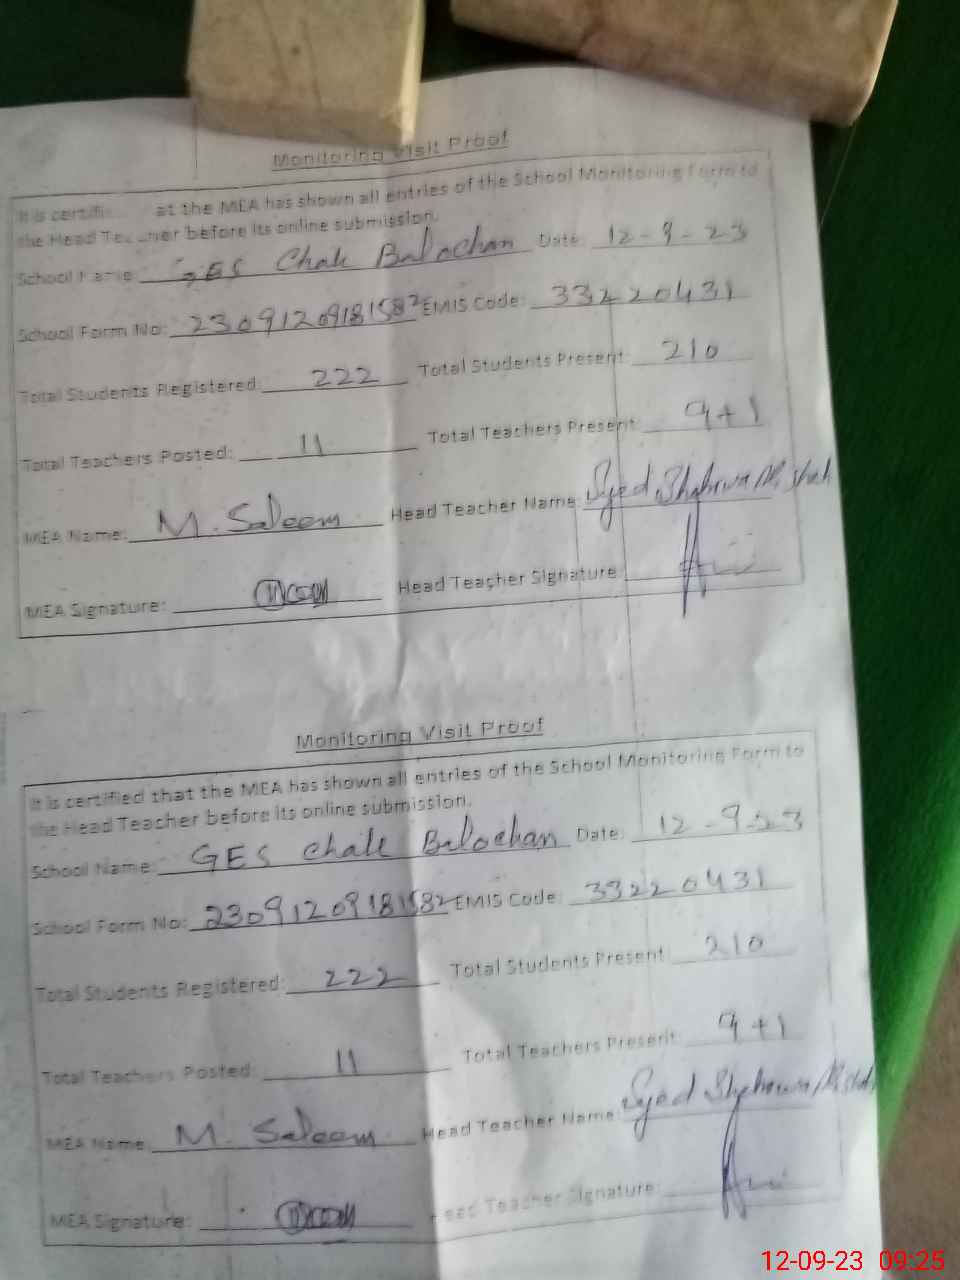 Monitoring Visit Proof
It is certifi at the MEA has shown all entries of the School Monitoring Form to
the Head Teacher before its online submission.
School Name: GES Chak Balochan Date: 12-9-23
School Form No: 23091209181582 EMIS Code: 33220431
Total Students Registered: 222 Total Students Present: 210
Total Teachers Posted: 11 Total Teachers Present: 9+1
MEA Name: M. Saleem Head Teacher Name: Syed
MEA Signature: Head Teacher Signature:
Monitoring Visit Proof
It is certified that the MEA has shown all entries of the School Monitoring Form to
the Head Teacher before its online submission.
School Name: GES Chak Balochan Date: 12-9-23
School Form No: 23091209181582 EMIS Code: 33220431
Total Students Registered: 222 Total Students Present: 210
Total Teachers Posted: 11 Total Teachers Present: 9+1
MEA Name: M. Saleem Head Teacher Name: Syed
MEA Signature: Head Teacher Signature:
12-09-23 09:25